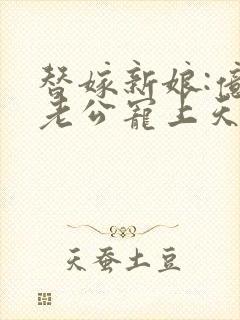 替嫁新娘:億
老公寵上天
天蚕土豆